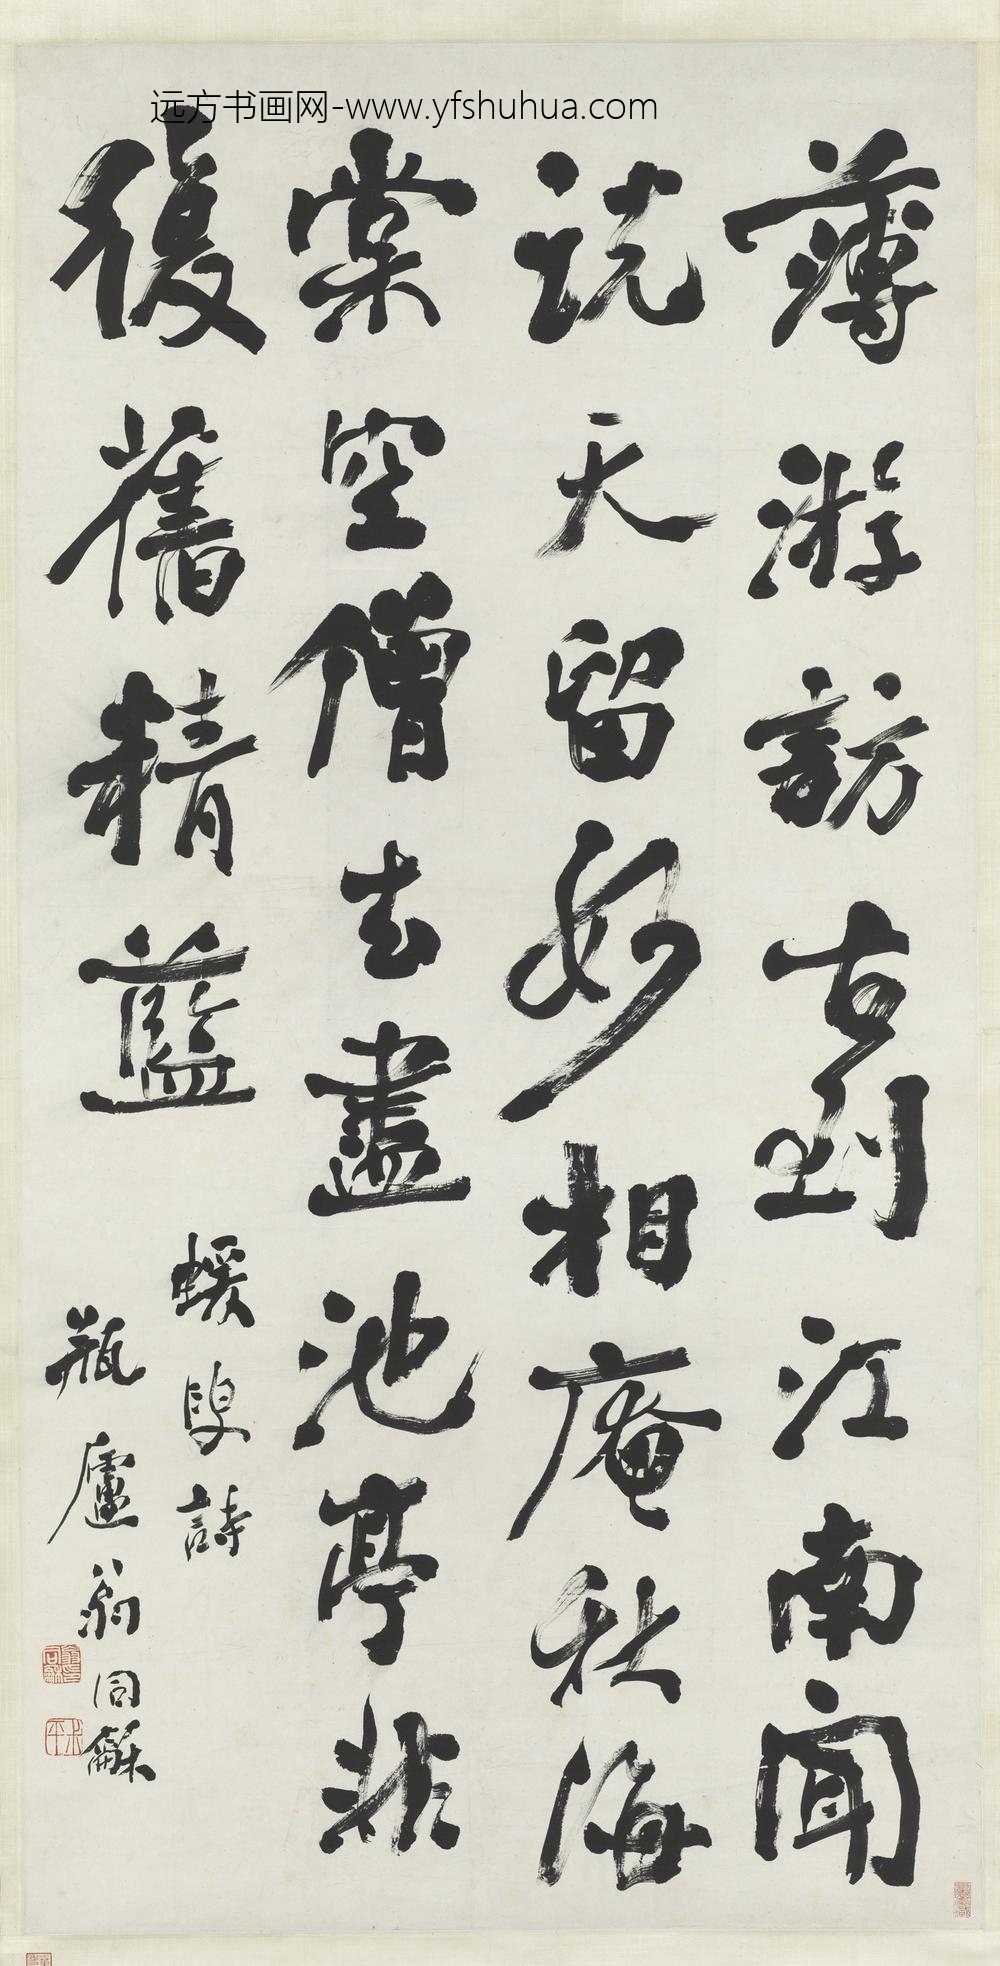 远方书画网-www.yfshuhua.com
薄游訪古到江南聞
說天留妙相庵秋海
棠空僧去盡池亭非
復舊精藍
蝯叟詩
瓶廬翁同龢